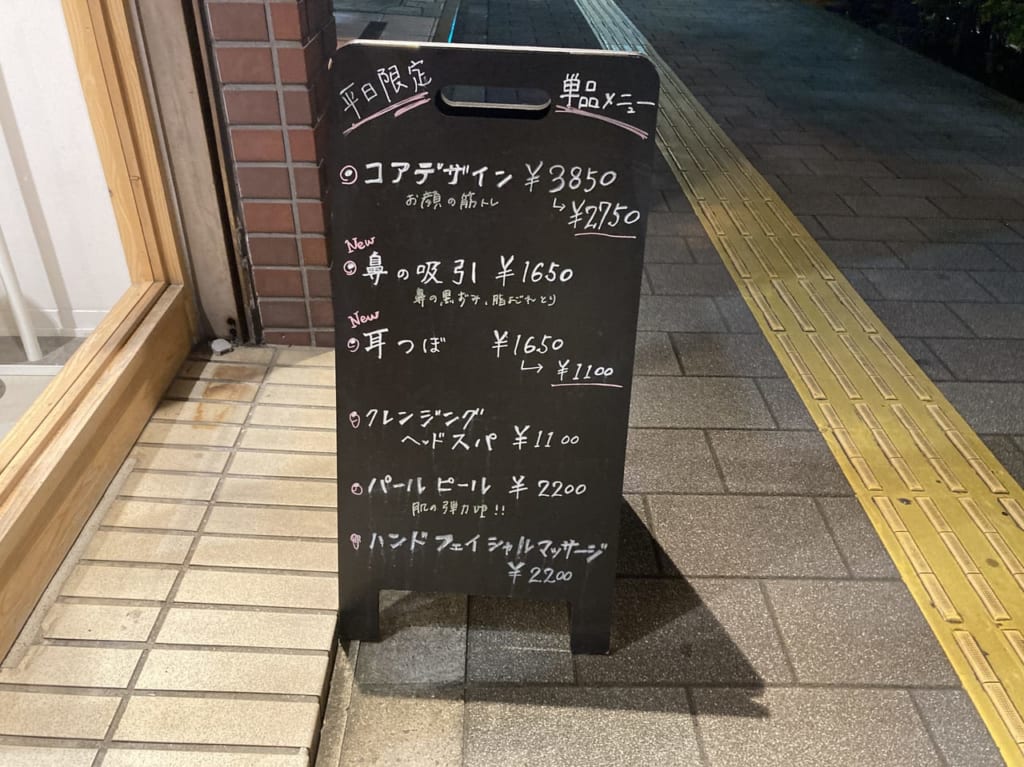 平日限定 単品メニュー
コアデザイン ¥3850
お顔の筋トレ
↳ ¥2750
New
鼻の吸引 ¥1650
鼻の黒ずみ、脂よごれとり
New
耳つぼ ¥1650
↳ ¥1100
クレンジング
ヘッドスパ ¥1100
パールピール ¥2200
肌の弾力up!!
ハンドフェイシャルマッサージ
¥2200